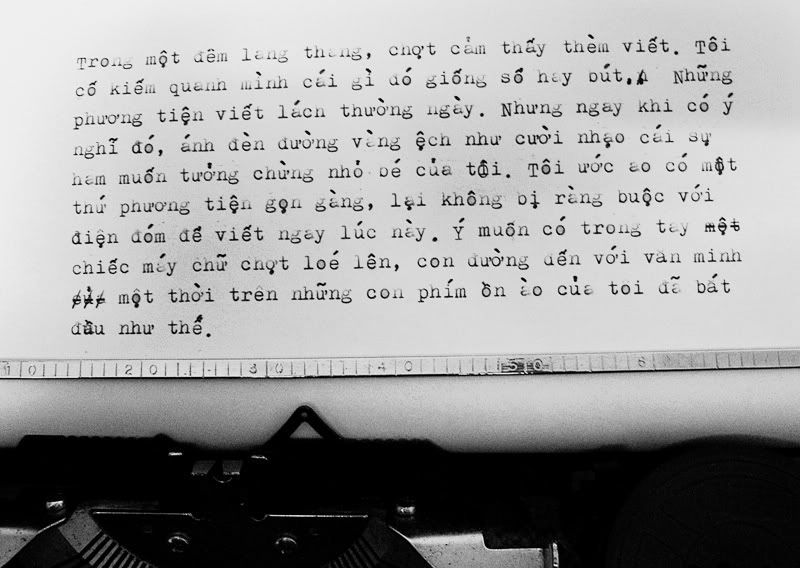 Trong một đêm lang thang, chợt cảm thấy thèm viết. Tôi
cố kiếm quanh mình cái gì đó giống sổ hay bút. Những
phương tiện viết lách thường ngày. Nhưng ngay khi có ý
nghĩ đó, ánh đèn đường vàng ệch như cười nhạo cái sự
ham muốn tưởng chừng nhỏ bé của tôi. Tôi ước ao có một
thứ phương tiện gọn gàng, lại không bị ràng buộc với
điện đóm để viết ngay lúc này. Ý muốn có trong tay một
chiếc máy chữ chợt loé lên, con đường đến với văn minh
một thời trên những con phím ồn ào của toi đã bắt
đầu như thế.
10 20 30 40 50 6